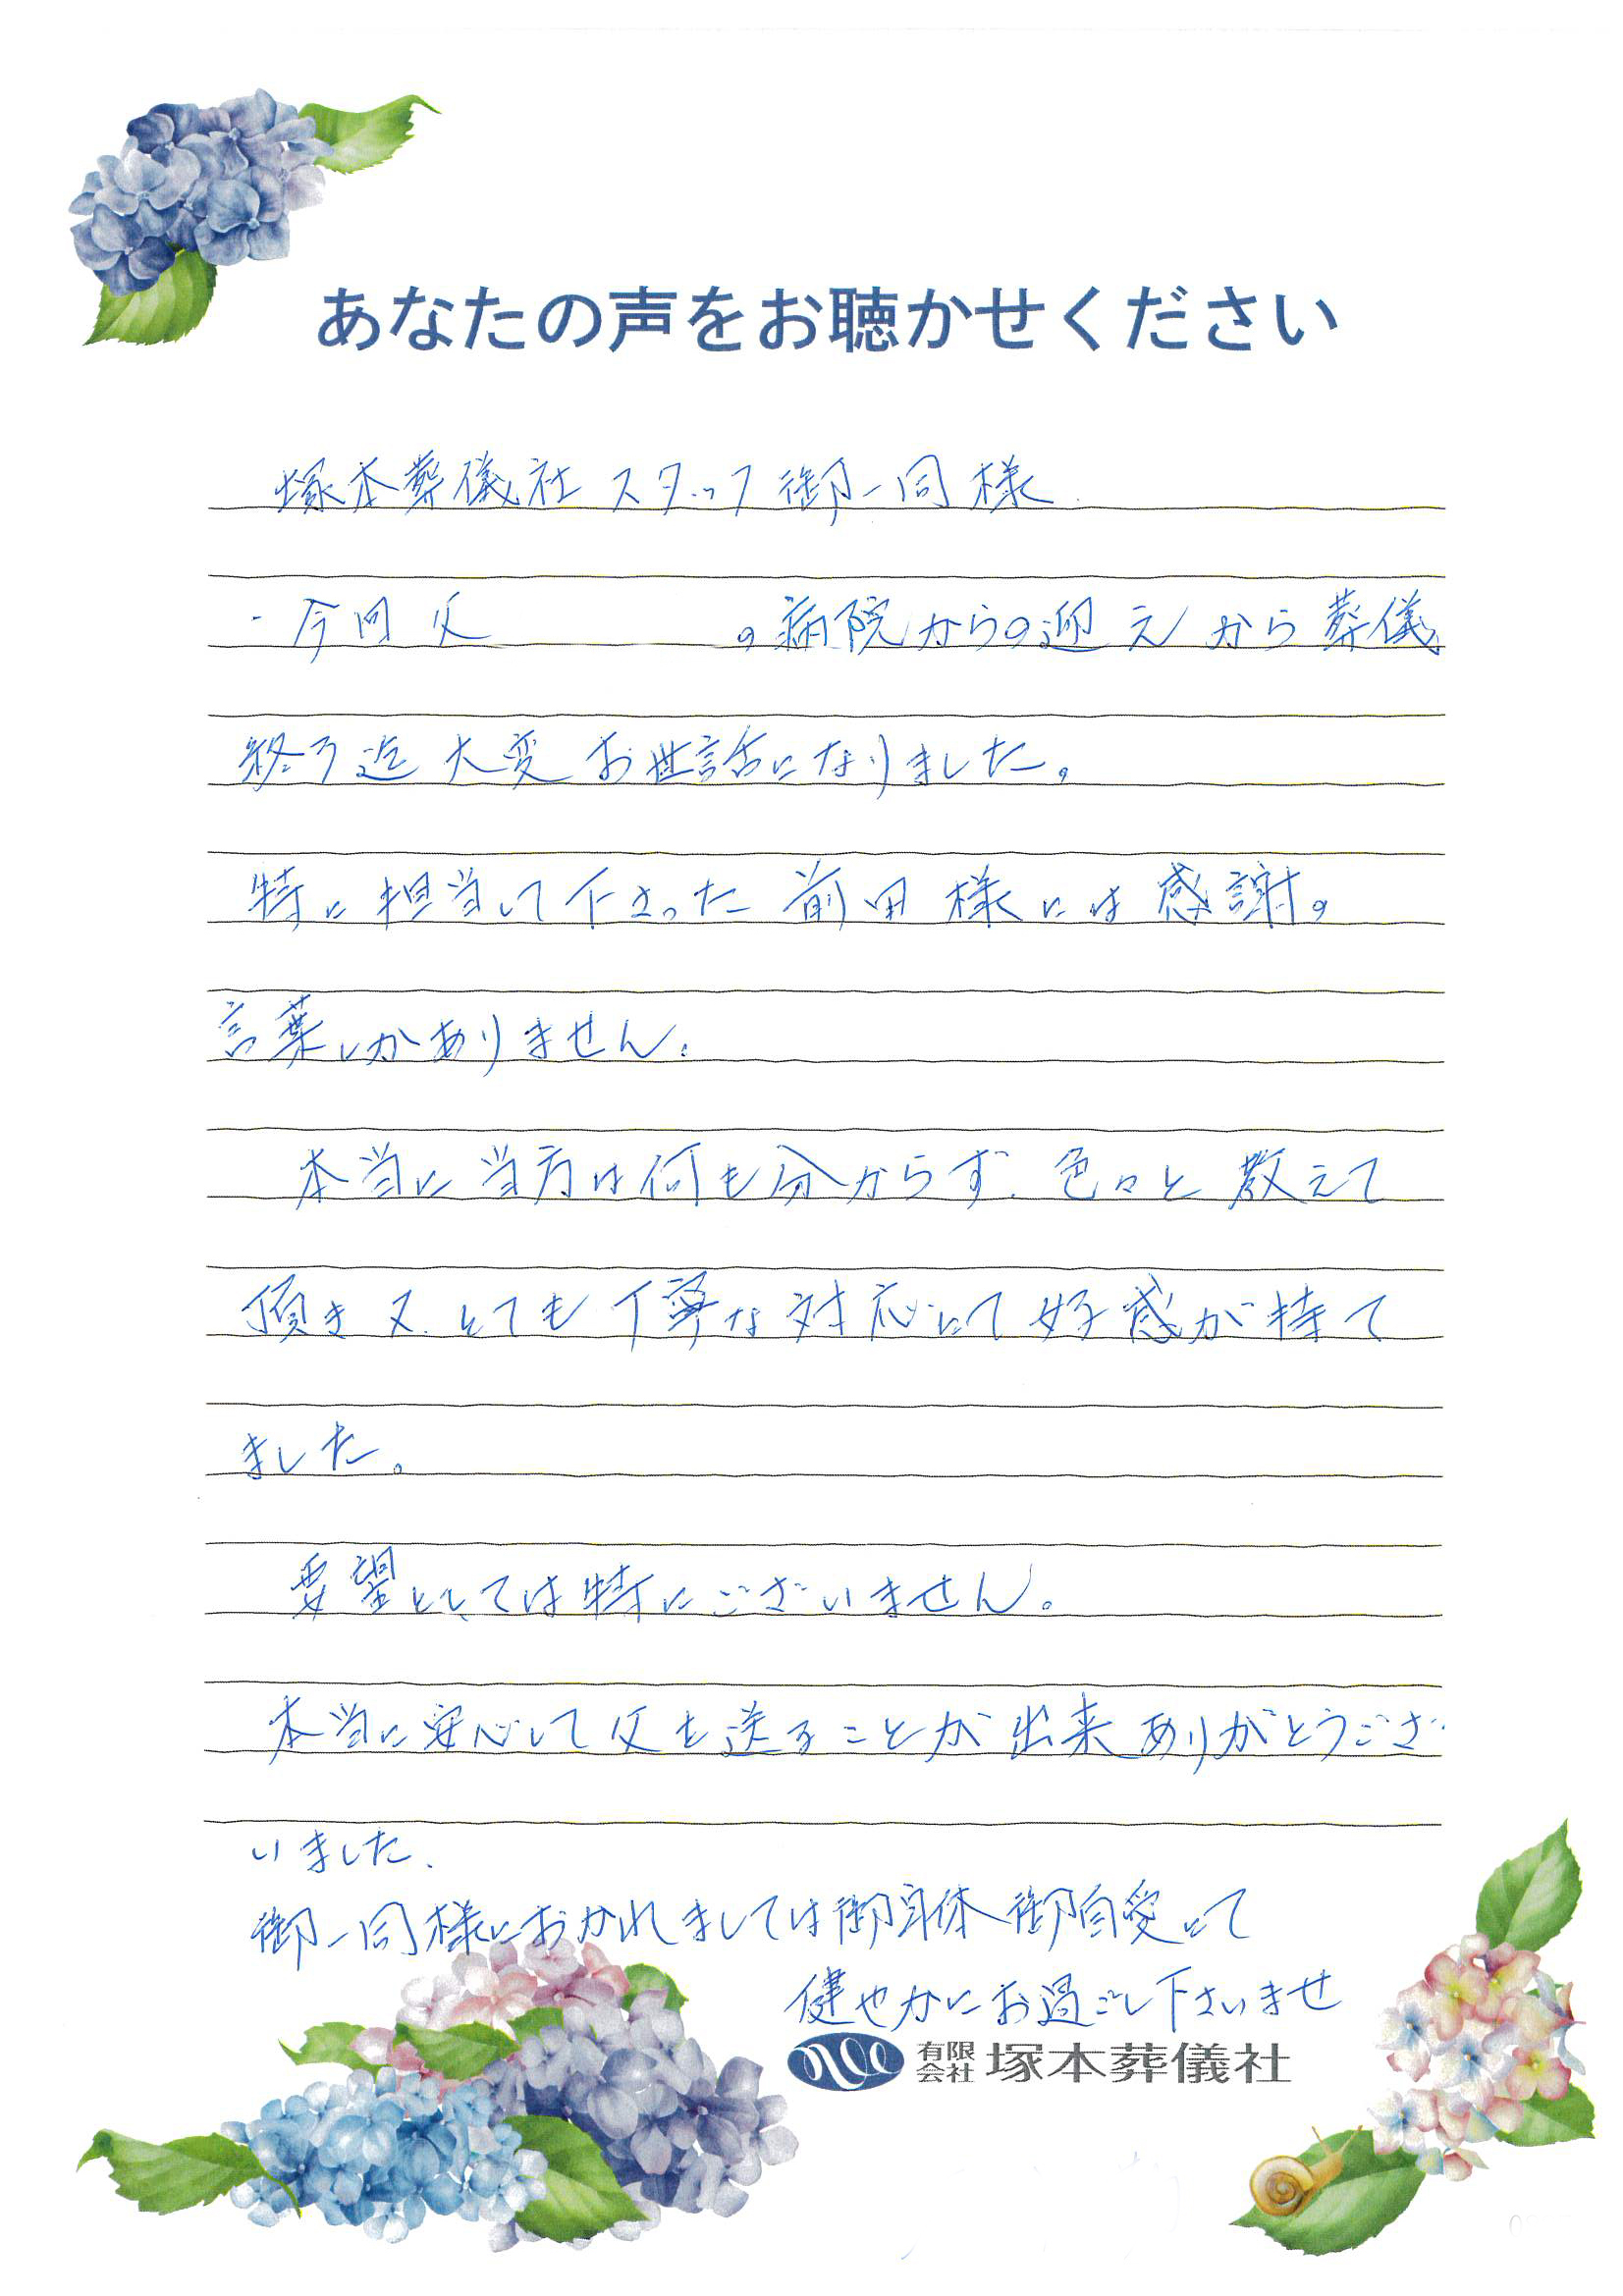 あなたの声をお聴かせください
塚本葬儀社 スタッフ 御一同様
・今回 父 の病院からの迎えから葬儀
終了迄 大変 お世話になりました。
特に担当して下さった 前田様には感謝の
言葉しかありません。
本当に当方は何も分からず、色々と教えて
頂き又、とても丁寧な対応にて好感が持て
ました。
要望としては特にございません。
本当に安心して父を送ることが出来ありがとうござ
いました。
御一同様におかれましては御身体御自愛にて
健やかにお過ごし下さいませ
有限会社 塚本葬儀社